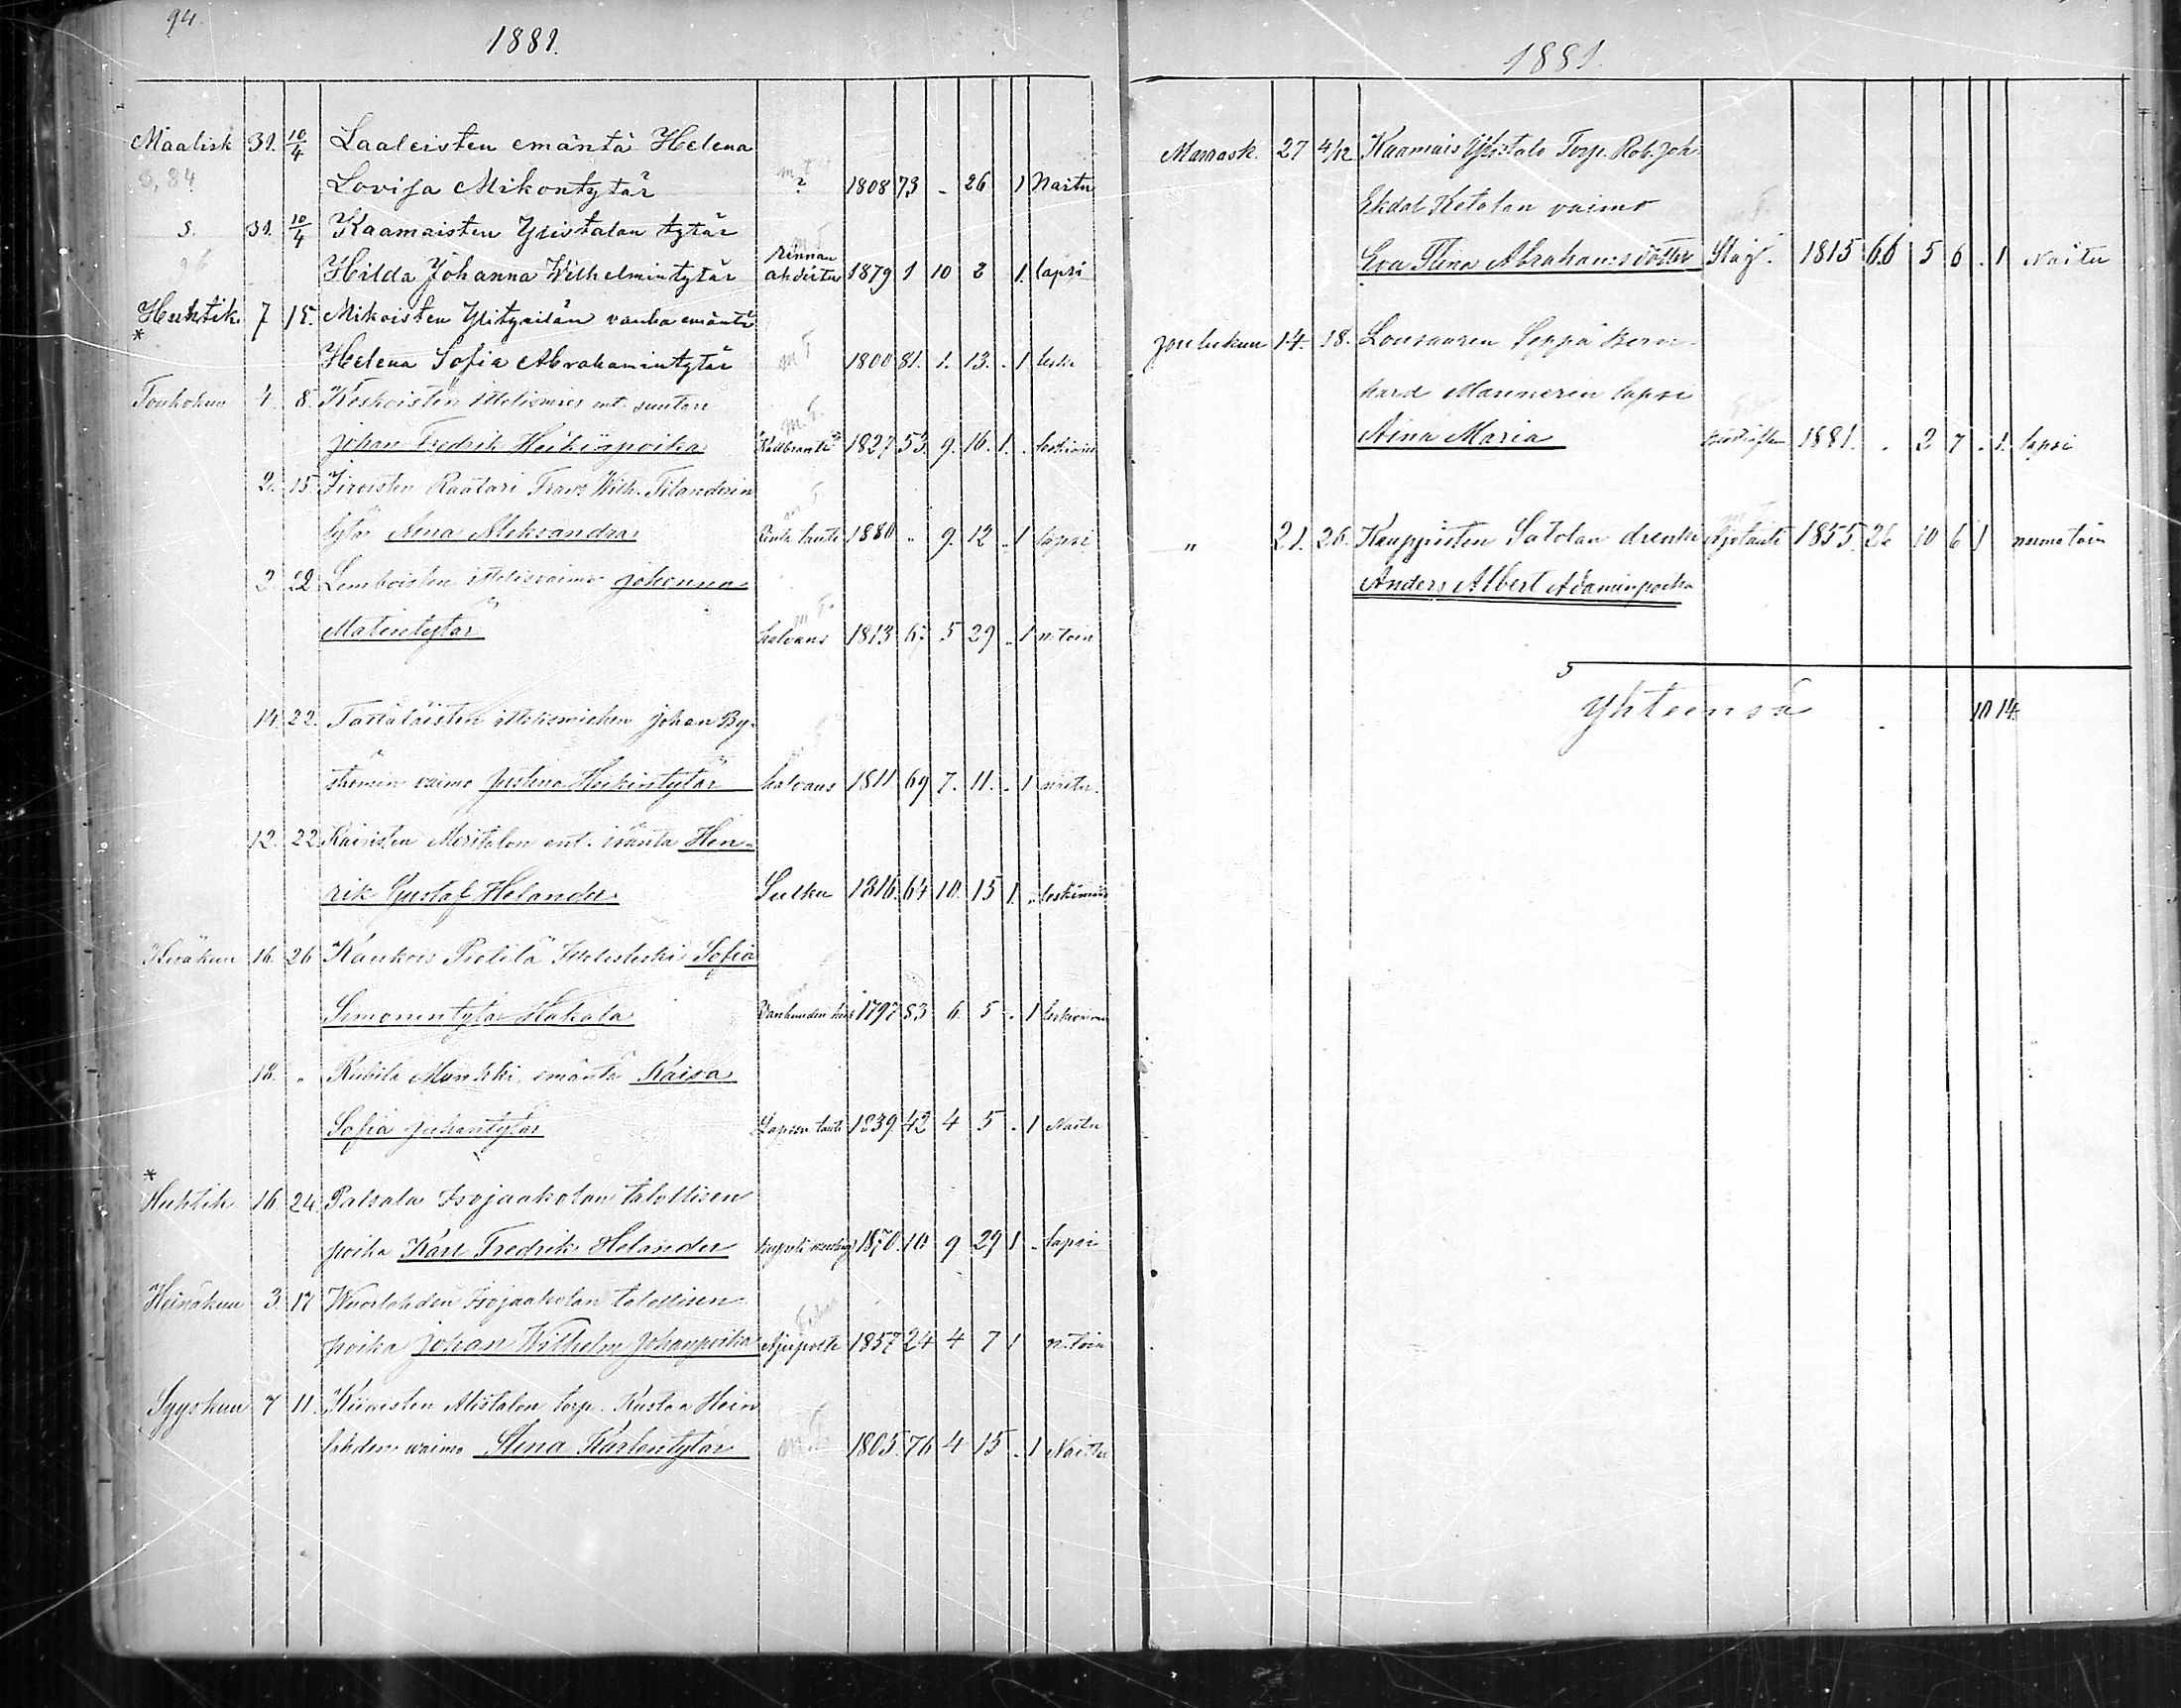 94.
1881.
Maalisk 31. 10/4 Laaleisten emäntä Helena
S, 84 Lovisa Mikontytär ? 1808 73 - 26 1 Naitu
S. 31. 10/4 Kaamaisten Ylistalon tytär
96 Hilda Johanna Wilhelmintytär rinnan ahdistus 1879 1 10 2 1. lapsi
Huhtik 7 15. Mikoisten Ylitysilän vanha emäntä
* Helena Sofia Abrahamintytär 1800 81. 1. 13. . 1 leski
Toukokuu 4. 8. Keskoisten ittelismies ent. suutari
Johan Fredrik Heikinpoika Kallbrandt 1827 53. 9. 16. 1. . leskimies
2. 15. Räätäri Frans Wilh. Tilanderin
tytär Aina Aleksandra tauti 1880 .. 9. 12 .. 1 lapsi
2 22 Lemboisten ittelisvaimo Johanna
Matintytär halvaus 1813 67 5 29 .. 1 n:toin
14. 22. Tattalaisten ittelismiehen Johan By-
strömin vaimo Justina Heikintytär halvaus 1811 69 7. 11. . 1 naitu.
12. 22. Kairisten Meritalon ent. isäntä Hen-
rik Gustaf Helander Sulku 1816. 64 10. 15 1. .. leskimies
Kesäkuu 16. 26 Kaukois Pietilä Ittelisleski Sofia
Simonintytär Hakala Vanhuuden 1797 83 6. 5 . 1 leskivaimo
18. .. Rubila Munkki emäntä Kaisa
Sofia Juhantytär Lapsen tauti 1839. 42 4 5 . 1 Naitu
*
Huhtik 16. 24 Palsala Isojaakolan talollisen
poika Karl Fredrik Helander 1870. 10 9 29 1 .. lapsi
Heinäkuu 3. 17 Wuorlahden Isojaakolan talollisen
poika Johan Wilhelm Johanpoika 1857 24 4 7 1 n:toin
Syyskuu 7 11. Kiivaisten Alistalon torp. Kustaa Hein
lahden vaimo Stina Karlentytär 1805. 76 4 15 . 1 Naitu
1881.
Marrask. 27 4/12 Kaamais Ylistalo Torp. Rob. Joh.
Ekdal Ketolan vaimo
Eva Stina Abrahamsdotter Slag. 1815 66 5 6 . 1 Naitu
Joulukuu 14. 18. Lousaaren Seppä Bern-
hard Mannerin lapsi
Aina Maria 1881. . 2 7 . 1. lapsi
" 21. 26. Kauppisten Satolan drenki Ajotauti 1855. 26 10 6 1 naimatoin
Anders Albert Adaminpoika
Yhteensä 10 14.